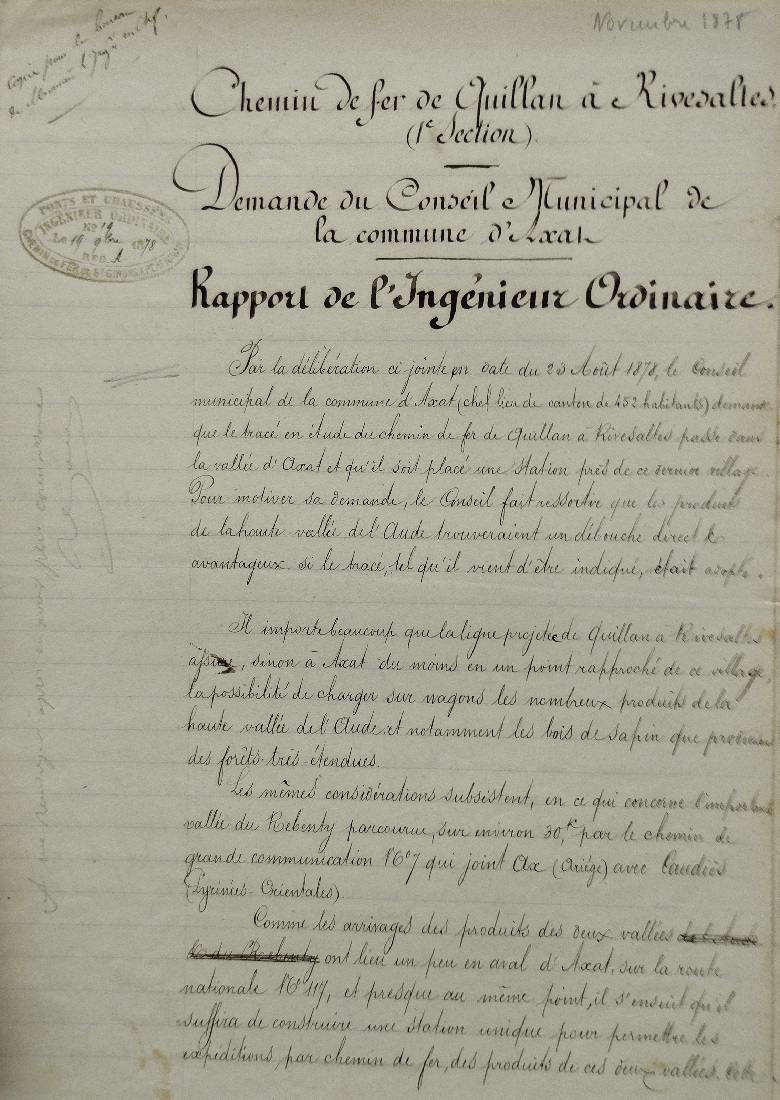 Novembre 1878
Copié pour le bureau
Chemin de fer de Quillan à Rivesaltes.
(1e Section).
Demande du Conseil Municipal de
la commune d'Axat
PONTS ET CHAUSSÉES
INGÉNIEUR ORDINAIRE
No 19
Le 19 9bre 1878
CHEMIN DE FER DE ST GIRONS A
Rapport de l'Ingénieur Ordinaire.
Par la délibération ci jointe en date du 23 Août 1878, le Conseil
municipal de la commune d'Axat, (chef lieu de canton de 452 habitants) demande
que le tracé en étude du chemin de fer de Quillan à Rivesaltes passe dans
la vallée d'Axat et qu'il soit placé une station près de ce dernier village.
Pour motiver sa demande, le Conseil fait ressortir que les produits
de la haute vallée de l'Aude trouveraient un débouché direct &
avantageux si le tracé, tel qu'il vient d'être indiqué, était adopté.
Il importe beaucoup que la ligne projetée de Quillan à Rivesaltes
sinon à Axat du moins en un point rapproché de ce village,
la possibilité de charger sur wagons les nombreux produits de la
haute vallée de l'Aude et notamment les bois de sapin que produisent
des forêts très étendues.
Les mêmes considérations subsistent, en ce qui concerne l'importante
vallée du Rebenty parcourue, sur environ 30,k par le chemin de
grande communication No 7 qui joint Ax (Ariége) avec Caudiès
(Pyrénées-Orientales).
Comme les arrivages des produits des deux vallées de l'Aude
& du Rebenty ont lieu un peu en aval d'Axat, sur la route
nationale No 117, et presque au même point, il s'ensuit qu'il
suffira de construire une station unique pour permettre les
expéditions, par chemin de fer, des produits de ces deux vallées. Cette